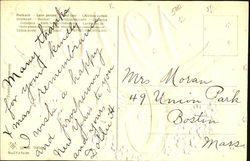 Many thanks
for your kindly
Xmas remembrance
I wish a happy
and prosperous
New Year to you
and yours
Mrs Moran
49 Union Park
Boston
Mass